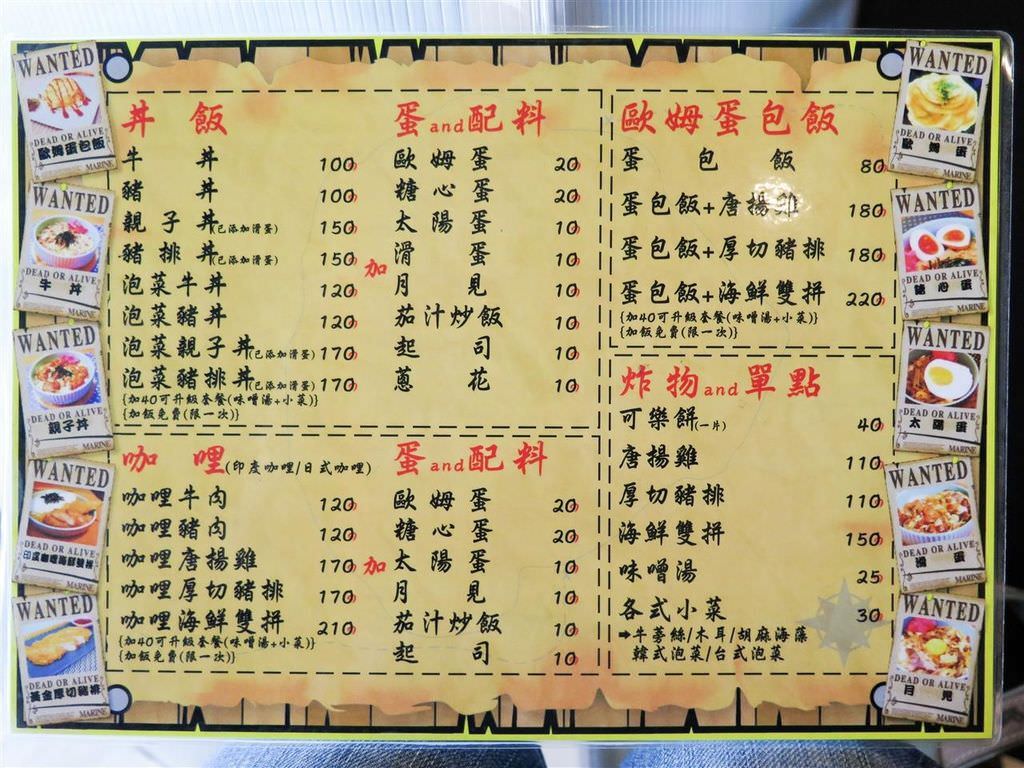 丼飯
牛丼 100
豬丼 100
親子丼(已添加滑蛋) 150
豬排丼(已添加滑蛋) 150
泡菜牛丼 120
泡菜豬丼 120
泡菜親子丼(已添加滑蛋) 170
泡菜豬排丼(已添加滑蛋) 170
{加40可升級套餐(味噌湯+小菜)}
{加飯免費(限一次)}
加
蛋and配料
歐姆蛋 20
糖心蛋 20
太陽蛋 10
滑蛋 10
月見 10
茄汁炒飯 10
起司 10
蔥花 10
咖哩(印度咖哩/日式咖哩)
咖哩牛肉 120
咖哩豬肉 120
咖哩唐揚雞 170
咖哩厚切豬排 170
咖哩海鮮雙拼 210
{加40可升級套餐(味噌湯+小菜)}
{加飯免費(限一次)}
加
蛋and配料
歐姆蛋 20
糖心蛋 20
太陽蛋 10
月見 10
茄汁炒飯 10
起司 10
歐姆蛋包飯
蛋包飯 80
蛋包飯+唐揚雞 180
蛋包飯+厚切豬排 180
蛋包飯+海鮮雙拼 220
{加40可升級套餐(味噌湯+小菜)}
{加飯免費(限一次)}
炸物and單點
可樂餅(一片) 40
唐揚雞 110
厚切豬排 110
海鮮雙拼 150
味噌湯 25
各式小菜 30
➡牛蒡絲/木耳/胡麻海藻
韓式泡菜/台式泡菜
WANTED
DEAD OR ALIVE
歐姆蛋包飯
MARINE
WANTED
DEAD OR ALIVE
牛丼
MARINE
WANTED
DEAD OR ALIVE
親子丼
MARINE
WANTED
DEAD OR ALIVE
印度咖哩海鮮雙拼
MARINE
WANTED
DEAD OR ALIVE
黃金厚切豬排
MARINE
WANTED
DEAD OR ALIVE
歐姆蛋
MARINE
WANTED
DEAD OR ALIVE
糖心蛋
MARINE
WANTED
DEAD OR ALIVE
太陽蛋
MARINE
WANTED
DEAD OR ALIVE
滑蛋
MARINE
WANTED
DEAD OR ALIVE
月見
MARINE